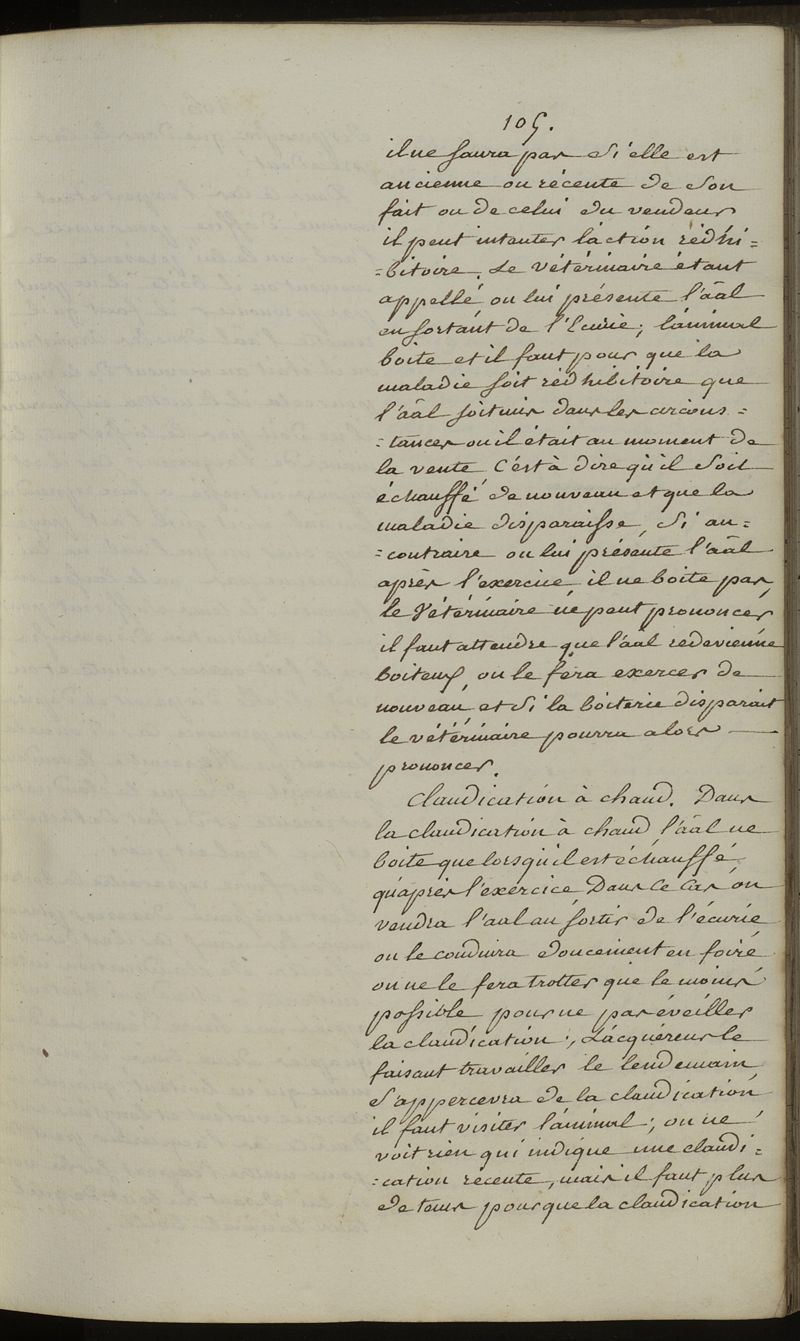 105.
il ne saura pas si elle est
ancienne ou récente de son
fait ou de celui du vendeur
il peut intenter l'action rédhi=
=bitoire. Le vétérinaire étant
appellé on lui présente l'aâl
en sortant de l'Ecurie; l'animal
boite et il faut pour que la
maladie soit rédhibitoire que
l'aâl soit mis dans les circons=
=tances ou il était au moment de
la vente C'est à dire qu'il soit
échauffé de nouveau et que la
maladie disparaisse, Si au=
=contraire on lui présente l'aâl
après l'exercice il ne boite pas,
le Vétérinaire ne peut prononcer
il faut attendre que l'aâl redevienne
boiteux, on le fera exercer de
nouveau, et si la boiterie disparait
le vétérinaire pourra alors
prononcer.
Claudication à chaud. Dans
la claudication à chaud l'aâl ne
boite que lorsqu'il est échauffé
qu'après l'exercice Dans ce cas on
vendra l'aal au sortir de l'écurie
on le conduira doucement en foire
on ne le fera trotter que le moins
possible pour ne pas éveiller
la claudication; L'acquéreur le
faisant travailler le lendemain
s'appercevra de la claudication
il faut visiter l'animal; on ne
voit rien qui indique une claudi=
=cation recente, mais il faut plus
de tems pour que la claudication